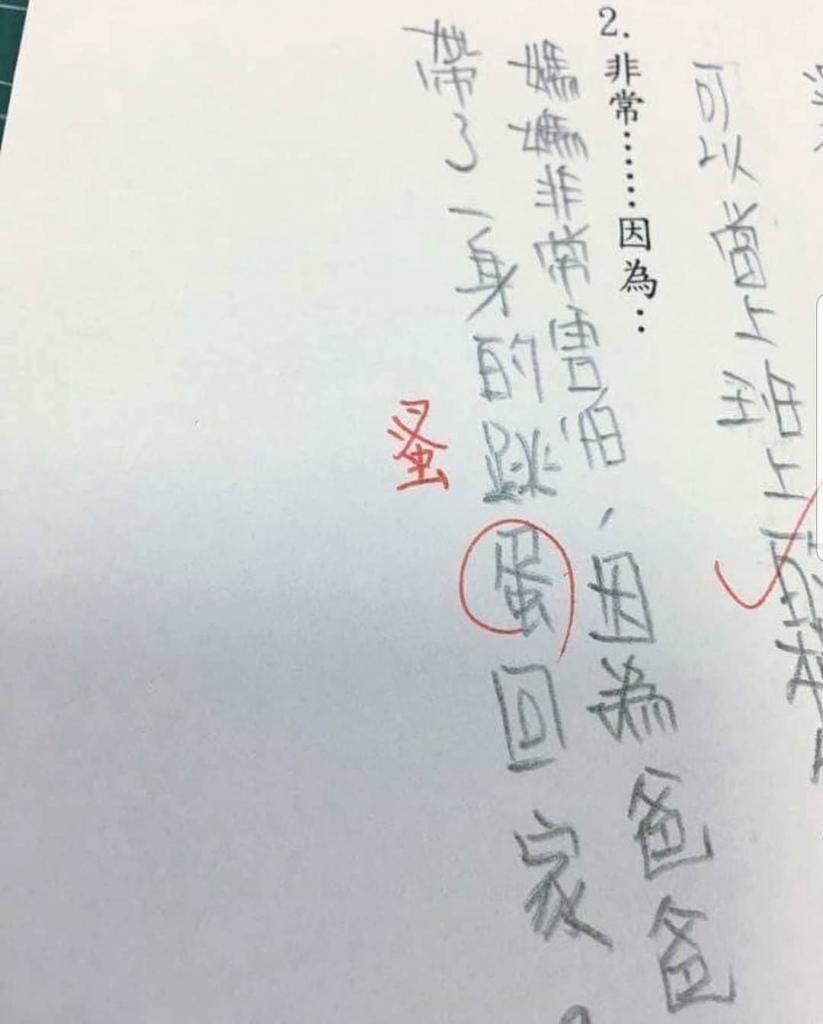 可以當上班上
2.非常……因為…
媽媽非常害怕，因為爸爸
帶了一身的跳蛋回家。
蚤